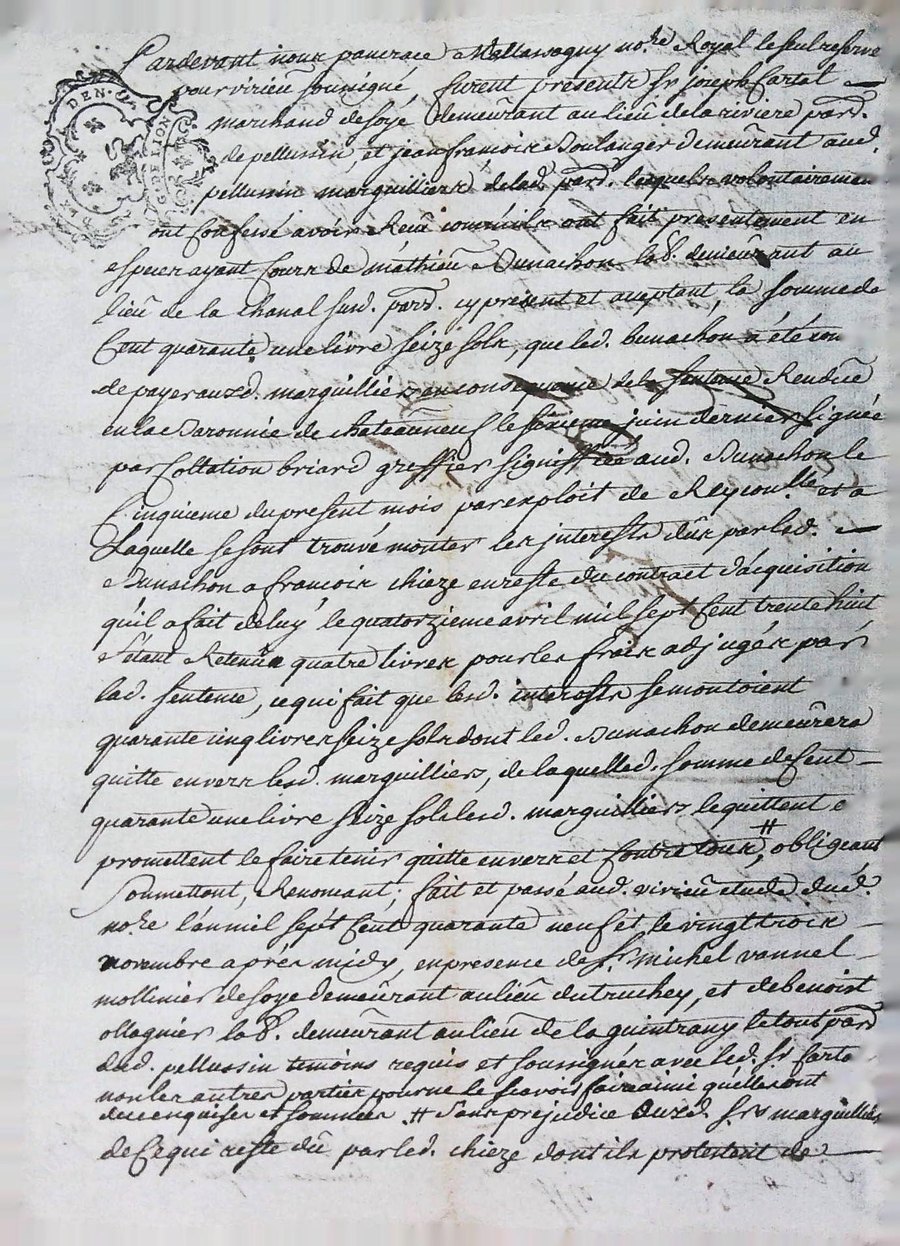 Pardevant nous pancrace Mallassagny no.re Royal le seul reservé
pour virieu soussigné furent presents Sr joseph Cartal
marchand de soye demeurant au lieu de la riviere parr.
de pellussin, et jean francois Boulanger demeurant aud.
pellussin marguilliers de lad. parr. lesquels volontairement
ont Confessé avoir Receu comm'ils ont fait presentement en
especes ayant Cours de mathieu Dunachon lab.r demeurant au
lieu de la Chanal susd. parr. cy present et aceptant, la somme de
Cent quarante une livre seize sols, que led. Dunachon a été con
de payer auxd. marguilliers en consequence de la sentence Rendüe
en la Baronnie de chateauneuf le juin dernier signée
par Collation briard greffier signiffiée aud. Dunachon le
Cinquieme du present mois par exploit de et a
Laquelle se sont trouvé monter les interests dûs par led.
Dunachon a francois chieze en reste du contract d'acquisition
qu'il a fait de luy le quatorzieme avril mil sept Cent trente huit
s'étant Retenu quatre livres pour les frais adjugés par
lad. sentence, ce qui fait que lesd. interests se montoient
quarante cinq livres seize sols dont led. Dunachon demeurera
quitte envers lesd. marguilliers, de laquelled. somme de Cent
quarante une livre seize sols lesd. marguilliers le quittent e
promettent le faire tenir quitte envers et Contre tous, # obligeant
Soumettant, Renonceant; fait et passé aud. virieu etude dud.
no.re l'an mil sept Cent quarante neuf et le vingt trois
novembre aprés midy, en presence de Sr michel vannel
mollinier de soye demeurant au lieu du truchey, et de benoist
ollagnier lab.r demeurant au lieu de la guintrany le tout parr
dud. pellussin temoins requis et soussignés avec led. Sr Carta
non les autres parties pour ne le scavoir faire ainsi qu'elles ont
de ce enquises et sommées .# sans prejudice auxd. Srs marguilliers
de Ce qui reste dû par led. chieze dont ils protestent de
DEN.
G. DE LION